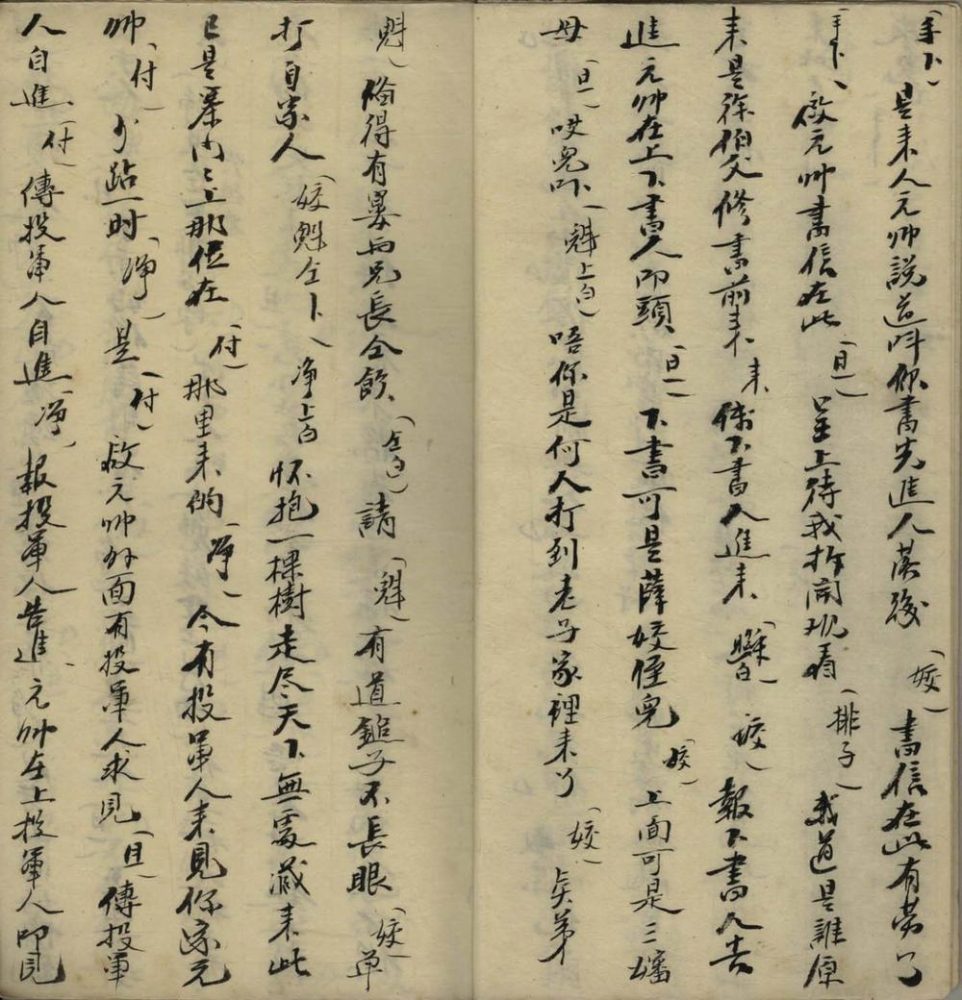 (手下)是來人元帅說道叫你書先進人落後(姣)書信在此有勞了
(手下)啟元帅書信在此(旦)呈上待我拆開現看(排子)我道是誰原
來是徐伯父修書前來 來 傳下書人進來(姣)報下書人告
進元帅在上下書人叩頭(旦)下書可是薛姣侄兒(姣)上面可是三嬸
母(旦)哎兒吓(魁上白)唔你是何人打到老子家裡來了(姣)矣弟
(魁)偷得有累與兄長仝飲(仝白)請(魁)有道鎚子不長眼(姣)单
打自家人(姣魁仝下)净上白 怀抱一棵樹走尽天下無處藏來此
已是寨内〻上那位在(付)那里來的(净)今有投軍人來見你家元
帅(付)少跕一时(净)是(付)啟元帅外面有投軍人求見(旦)傳投軍
人自進(付)傳投軍人自進(净)報投軍人告進元帅在上投軍人叩見